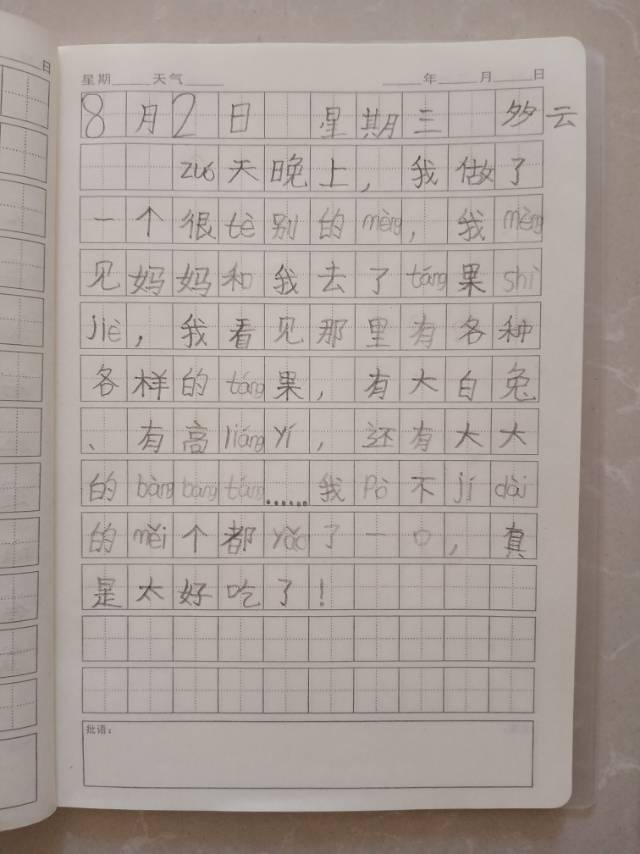 日
星期 天气 年 月 日
8月2日 星期三 多云
zuó天晚上，我做了
一个很tè别的mèng，我mèng
见妈妈和我去了táng果shì
jiè，我看见那里有各种
各样的táng果，有大白兔
、有高liángyí，还有大大
的bàngbàngtáng……我pò不jídài
的měi个都yǎo了一口，真
是太好吃了！
批语：